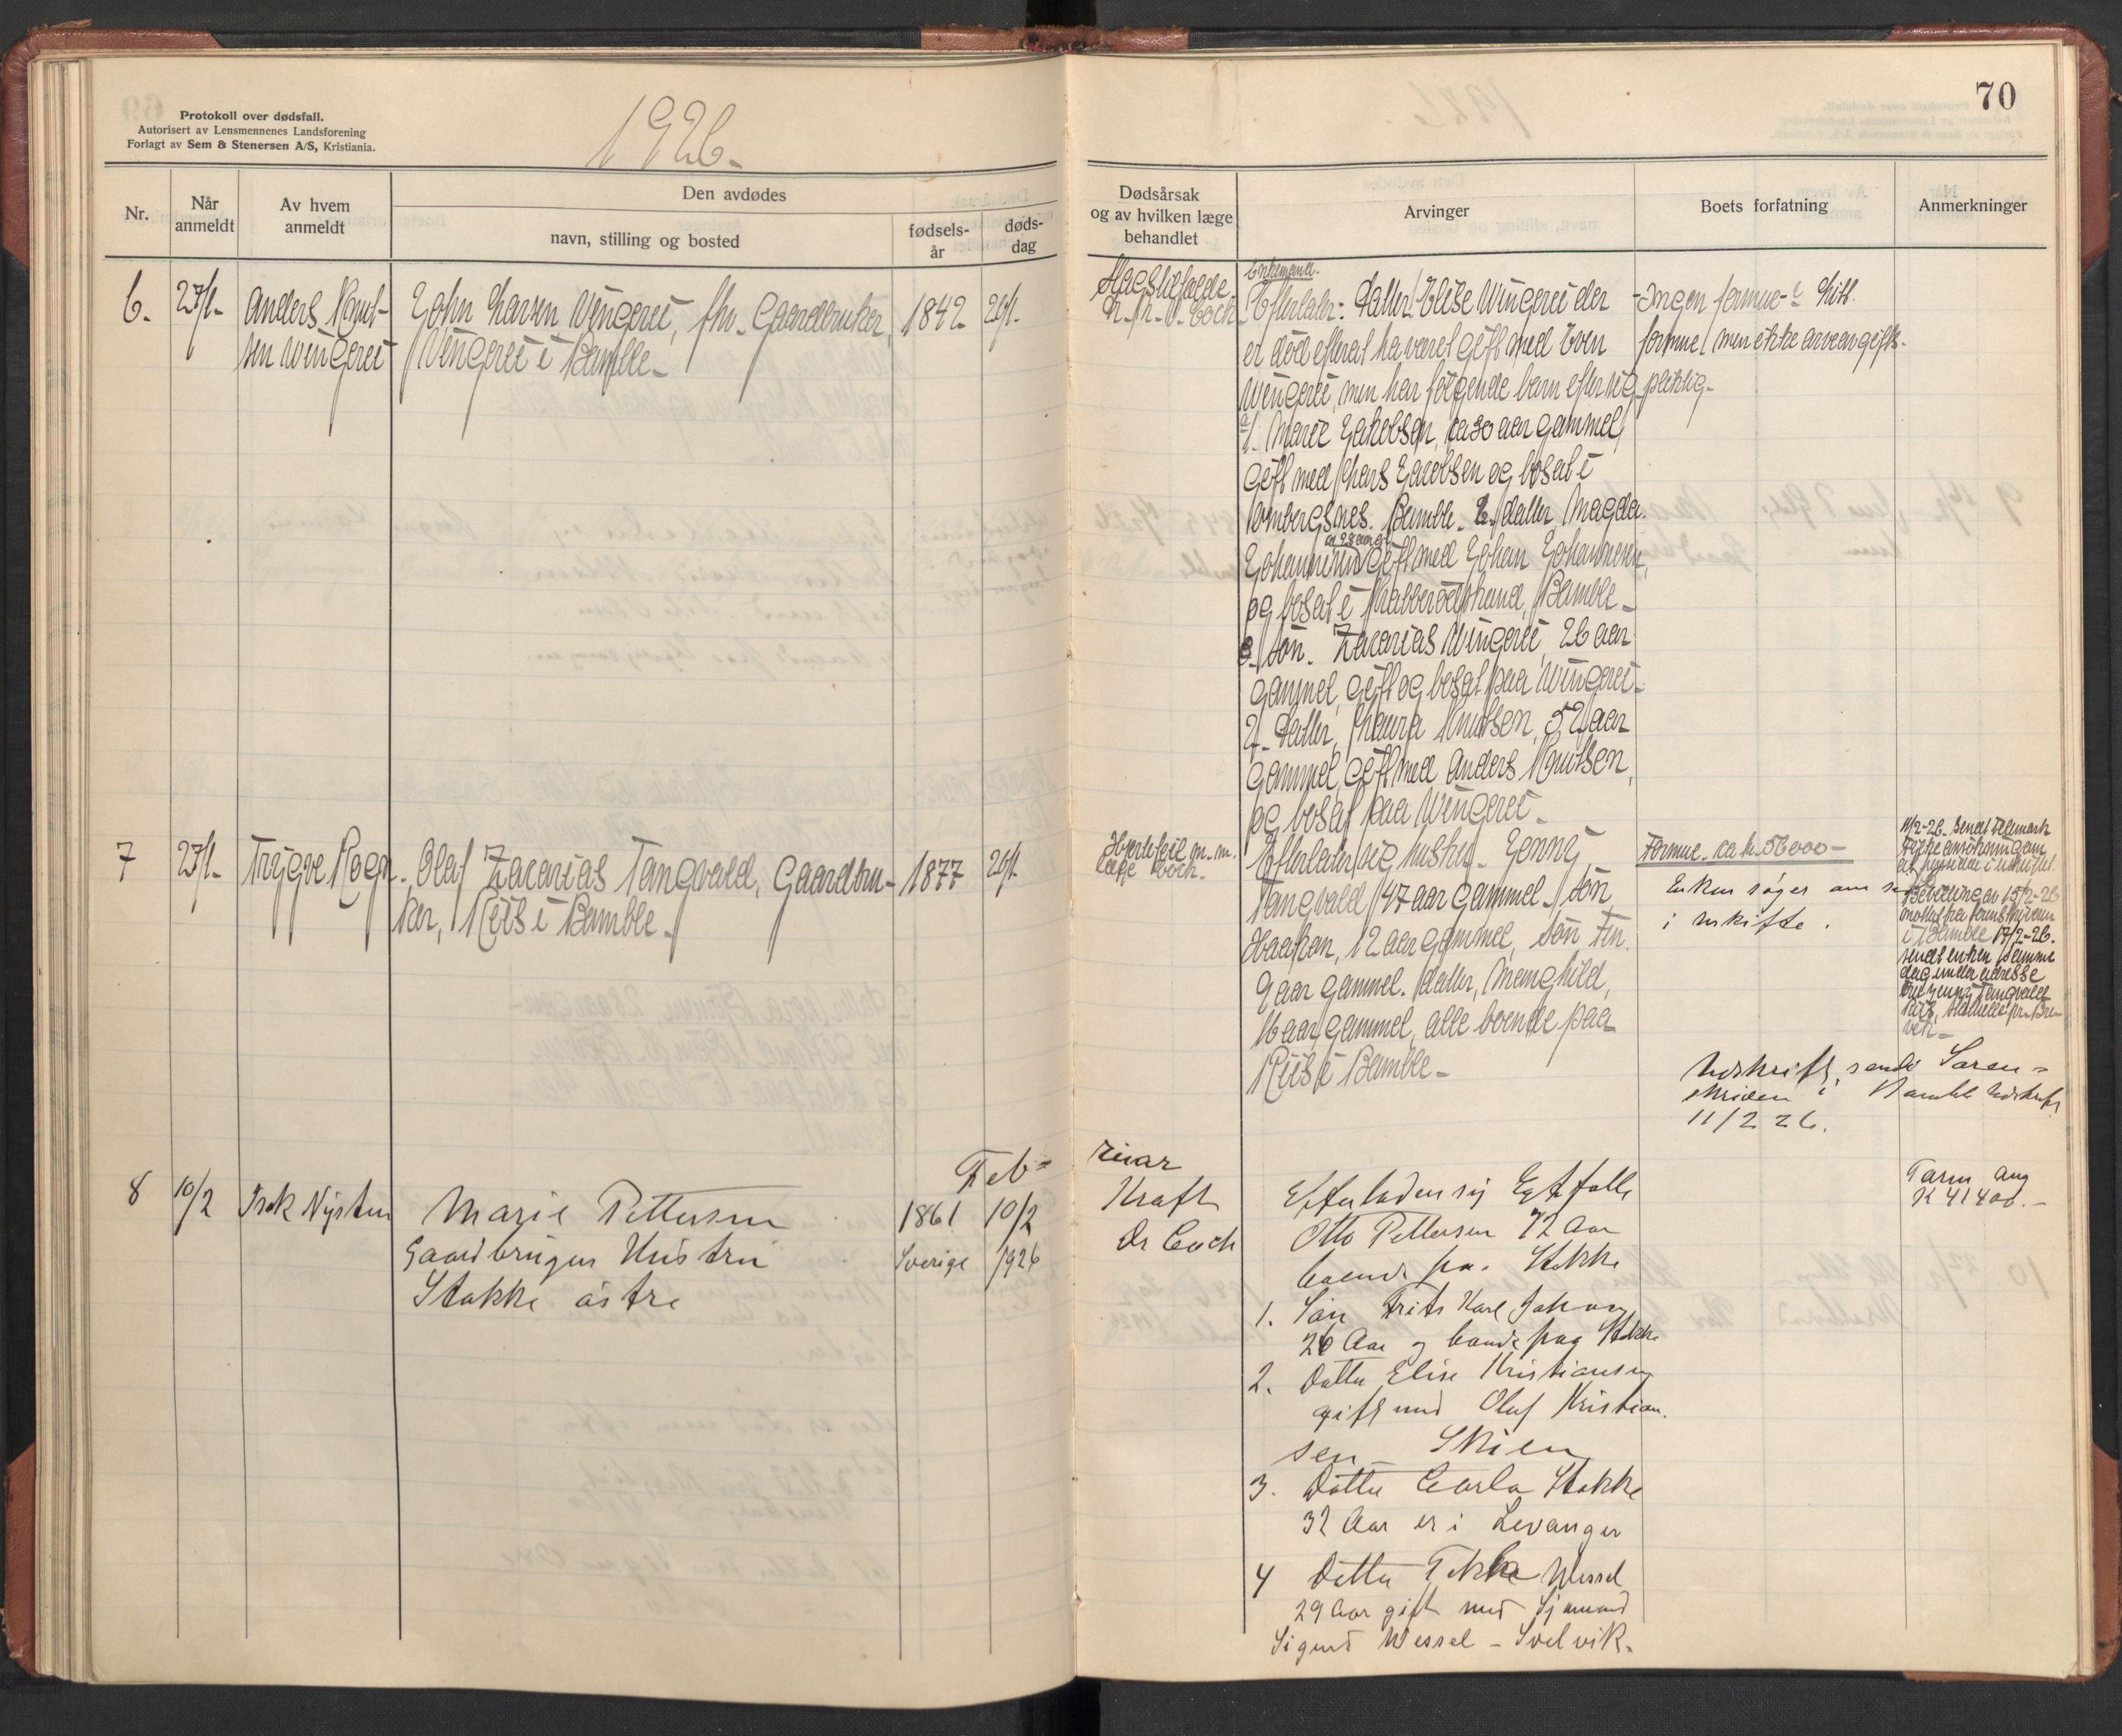 Protokoll over dødsfall.
Autorisert av Lensmennenes Landsforening
Forlagt av Sem & Stenersen A/S, Kristiania.
1926.
70
Nr.
Når anmeldt
Av hvem anmeldt
Den avdødes
navn, stilling og bosted
fødsels-år
døds-dag
Dødsårsak
og av hvilken læge
behandlet
Arvinger
Boets forfatning
Anmerkninger
6.
27/1-
Anders Knut-
sen Wingerei
John Larsen Wingerei, fhv. Gaardbruker,
Wingerei i Bamble-
1842
20/1-
Slagtilfælde
Cock
Enkemand.
Efterlater: Datter: Elise Wingerei der
er død efterat ha været gift med Even
Wingerei, men har følgende barn efter sig
a/1. Marie Jakobsen, ca 30 aar gammel,
gift med Lars Jacobsen og bosat i
Tombergsnes. Bamble. 2. datter, Magda
Johannesen gift med Johan Johannesen,
ca 28 aar gl.
og bosat i Krabberødstrand, Bamble-
3. søn. Zacarias Wingerei, 26 aar
gammel, gift og bosat paa Wingerei-
2. Datter, Laura Knutsen, 52 aar
gammel, gift med Anders Knutsen,
og bosat paa Wingerei-
Ingen formue-
formue men ikke arveavgifts-
pliktig-
7
27/1-
Trygve Rogn.
Olaf Zacarias Tangvald, Gaardbru-
ker, Riis i Bamble-
1877
20/1
Hjertefeil m.m.
læge Cock.
Efterlater sig hustru- Jenny
Tangvald 47 aar gammel. Søn
Haakon, 12 aar gammel, søn Fin
9 aar gammel. datter, Manghild,
16 aar gammel, alle boende paa
Riis i Bamble-
Formue ca kr. 50 000-
Enken søger om
i uskifte.
11/2-26. Sendt Telemark
Bevilling av 15/2-26
mottat fra sorenskriveren
i Bamble 17/2-26.
sendt enken samme
dag under adresse
Fru Jenny Tangvald
Riis, Stathelle pr. Bre-
vik-
Udskrift sendt Soren-
skriven i Bamble
11/2 26.
Feb-
ruar
8
10/2
Isak Nysten
Marie Pettersen
Gaardbruger Hustru
Stokke østre
1861
Sverige
10/2
1926
Kraft
Dr Cock
Efterladen sig Egtefælle
Otto Pettersen 72 Aar
boende pa. Stokke
1. Søn Frits Karl Johan
26 Aar og boende paa Stokke
2. Datter Elise Kristiansen
gift med Olaf Kristian-
sen Skien
3. Datter Carla Stokke
32 Aar er i Levanger
4 Datter Tekla Wessel
29 Aar gift med Sjømand
Sigurd Wessel - Svelvik.
K 41400.-